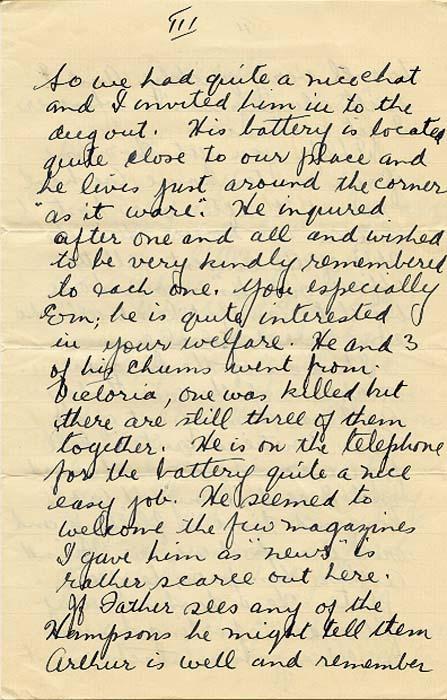 III
So we had quite a nice chat
and I invited him in to the
dugout. His battery is located
quite close to our place and
he lives just around the corner
"as it ware". He inquired
after one and all and wished
to be very kindly remembered
to each one. You especially
Em; he is quite interested
in your welfare. He and 3
of his chums went from
Victoria, one was killed but
there are still three of them
together. He is on the telephone
for the battery quite a nice
easy job. He seemed to
welcome the few magazines
I gave him as "news" is
rather scarce out here.
If Father sees any of the
Hampsons he might tell them
Arthur is well and remember